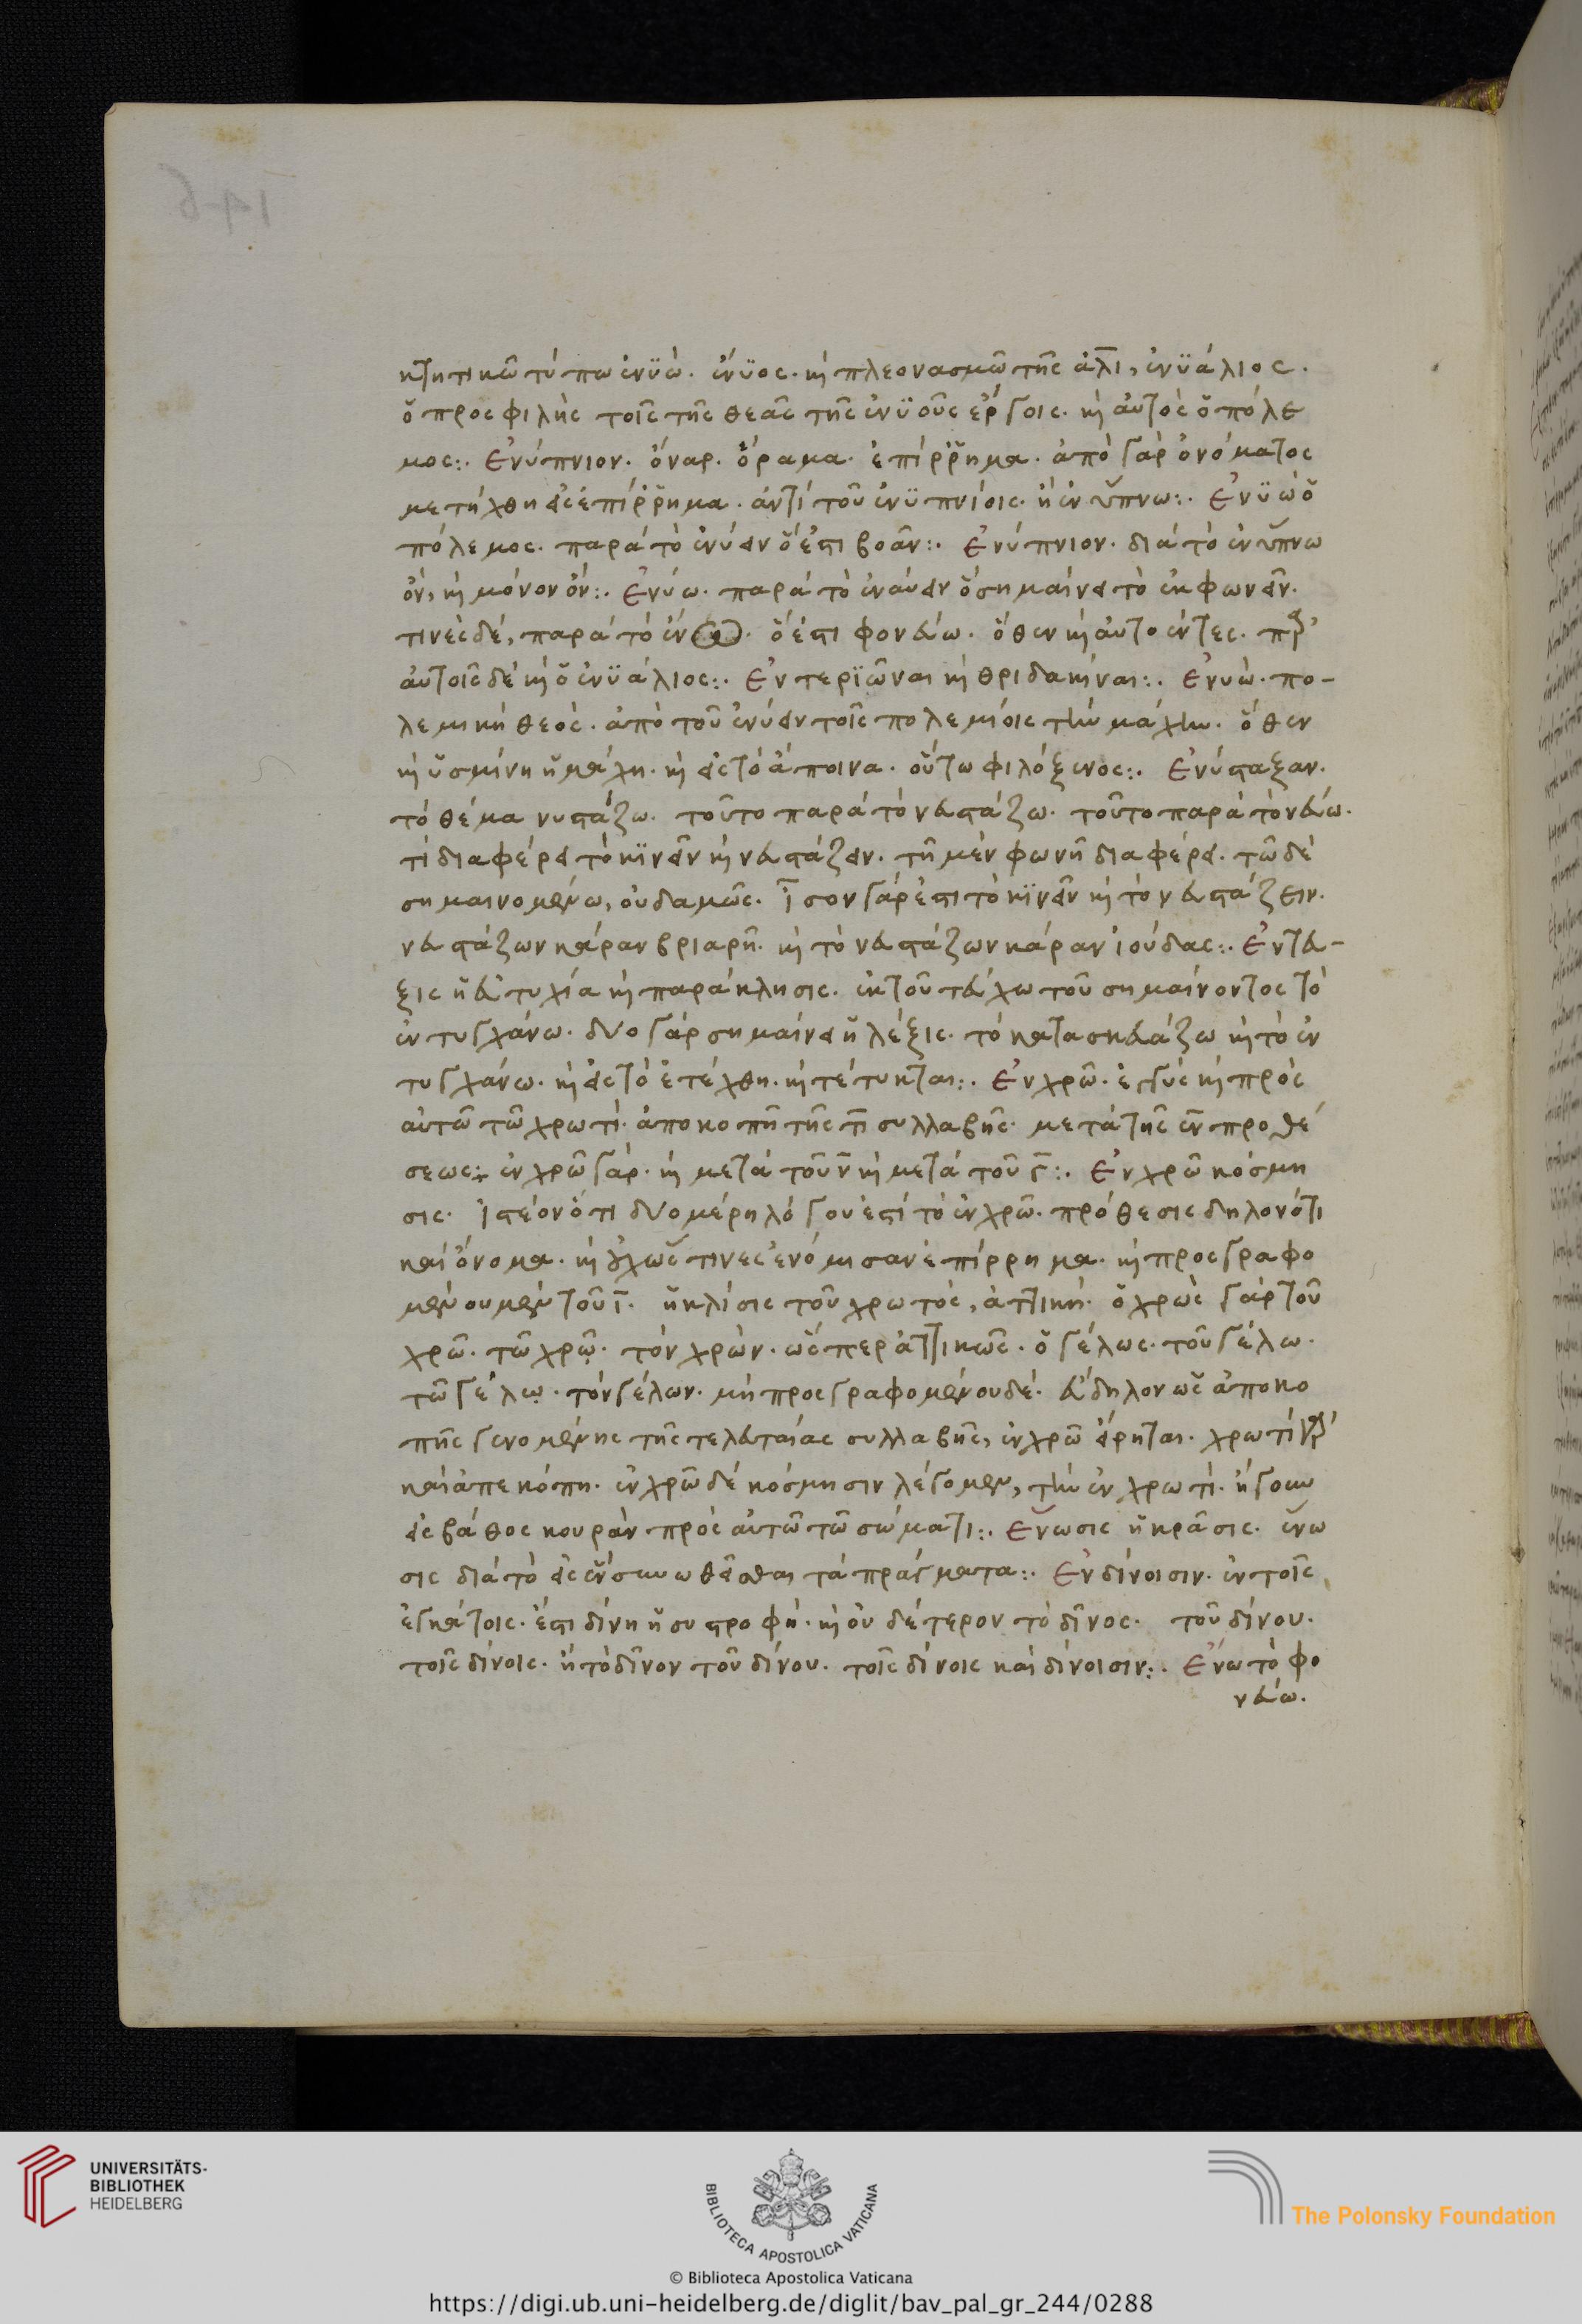 κτητικῶ τύπω ἐνϋὼ. ἔνϋος. κὶ πλεονασμῶ τῆς αλι, ἐνϋάλιος.
ὁ προσφιλὴς τοῖς τῆς θεᾶς τῆς ἐνϋοῦς ἔργοις. κὶ αὐτὸς ὁ πόλε
μος:. Ενύπνιον. ὄναρ. ὅραμα. ἐπίρρημα. ἀπὸ γὰρ ὀνόματος
μετήχθη εἰς ἐπίρρημα. ἀντὶ τοῦ ἐνϋπνίοις. ἢ ἐν ὕπνω:. Ενϋὼ ὁ
πόλεμος. παρὰ τὸ ἐνύειν ὅ ἐστι βοᾶν:. Ενύπνιον. διὰ τὸ ἐν ὕπνω
ὄν, κὶ μόνον ὄν:. Ενύω. παρὰ τὸ ἐναύειν ὃ σημαίνει τὸ ἐκφωνεῖν.
τινὲς δέ, παρὰ τὸ ἐνῶ. ὅ ἐστι φονεύω. ὅθεν κὶ αὐτοέντες. παρ
αὐτοῖς δὲ κὶ ὁ ἐνϋάλιος:. Εντεριῶναι κὶ θριδακίναι:. Ενυὼ. πο-
λεμικὴ θεός. ἀπὸ τοῦ ἐνύειν τοῖς πολεμίοις τὴν μάχην. ὅθεν
κὶ ὑσμίνη ἡ μάχη. κὶ εἰς τὸ ἄποινα. οὕτω φιλόξενος:. Ενύσταξαν.
τὸ θέμα νυστάζω. τοῦτο παρὰ τὸ νευστάζω. τοῦτο παρὰ τὸ νεύω.
τί διαφέρει τὸ κινεῖν κὶ νευστάζειν. τῆ μὲν φωνῆ διαφέρει. τῶ δὲ
σημαινομένω, οὐδαμῶς. ἶσον γάρ ἐστι τὸ κινεῖν κὶ τὸ νευστάζειν.
νευστάζων κάραν βριαρῆ. κὶ τὸ νευστάζων κάραν ἰούδας:. Εντευ-
ξις ἡ εὐτυχία κὶ παράκλησις. ἐκ τοῦ τεύχω τοῦ σημαίνοντος τὸ
ἐντυγχάνω. δύο γὰρ σημαίνει ἡ λέξις. τὸ κατασκευάζω κὶ τὸ ἐν
τυγχάνω. κὶ εἰς τὸ ἐτέχθη. κὶ τέτυκται:. Εν χρῶ. ἐγγὺς κὶ πρὸς
αὐτῶ τῶ χρωτὶ. ἀποκοπῆ τῆς τι συλλαβῆς. μετὰ τῆς ἐν προθέ
σεως:. ἐν χρῶ γάρ. κὶ μετὰ τοῦ ν κὶ μετὰ τοῦ γ:. Εν χρῶ κόσμη
σις. ἰστέον ὅτι δύο μέρη λόγου ἐστὶ τὸ ἐν χρῶ. πρόθεσις δηλονότι
καὶ ὄνομα. κὶ οὐχ ὥς τινες ἐνόμισαν ἐπίρρημα. κὶ προσγραφο
μένου μὲν τοῦ ι. ἡ κλίσις τοῦ χρωτός, ἀττικὴ. ὁ χρὼς γὰρ τοῦ
χρῶ. τῶ χρῷ. τὸν χρὼν. ὥσπερ ἀττικῶς. ὁ γέλως. τοῦ γέλω.
τῶ γέλῳ. τὸν γέλων. μὴ προσγραφομένου δέ. εὔδηλον ὡς ἀποκο
πῆς γενομένης τῆς τελευταίας συλλαβῆς, ἐν χρῶ εἴρηται. χρωτὶ γὰρ
καὶ ἀπεκόπη. ἐν χρῶ δὲ κόσμησιν λέγομεν, τὴν ἐν χρωτὶ. ἤγουν
εἰς βάθος κουρὰν πρὸς αὐτῶ τῶ σώματι:. Ενωσις ἡ κρᾶσις. ἕνω
σις διὰ τὸ εἰς ἓν συνωθεῖσθαι τὰ πράγματα:. Εν δίνοισιν. ἐν τοῖς
ἐγκάτοις. ἔστι δίνη ἡ συστροφή. κὶ οὐδέτερον τὸ δῖνος. τοῦ δίνου.
τοῖς δίνοις. ἢ τὸ δῖνον τοῦ δίνου. τοῖς δίνοις καὶ δίνοισιν:. Ενω τὸ φο
νεύω.
UNIVERSITÄTS-
BIBLIOTHEK
HEIDELBERG
BIBLIOTECA APOSTOLICA VATICANA
The Polonsky Foundation
© Biblioteca Apostolica Vaticana
https://digi.ub.uni-heidelberg.de/diglit/bav_pal_gr_244/0288